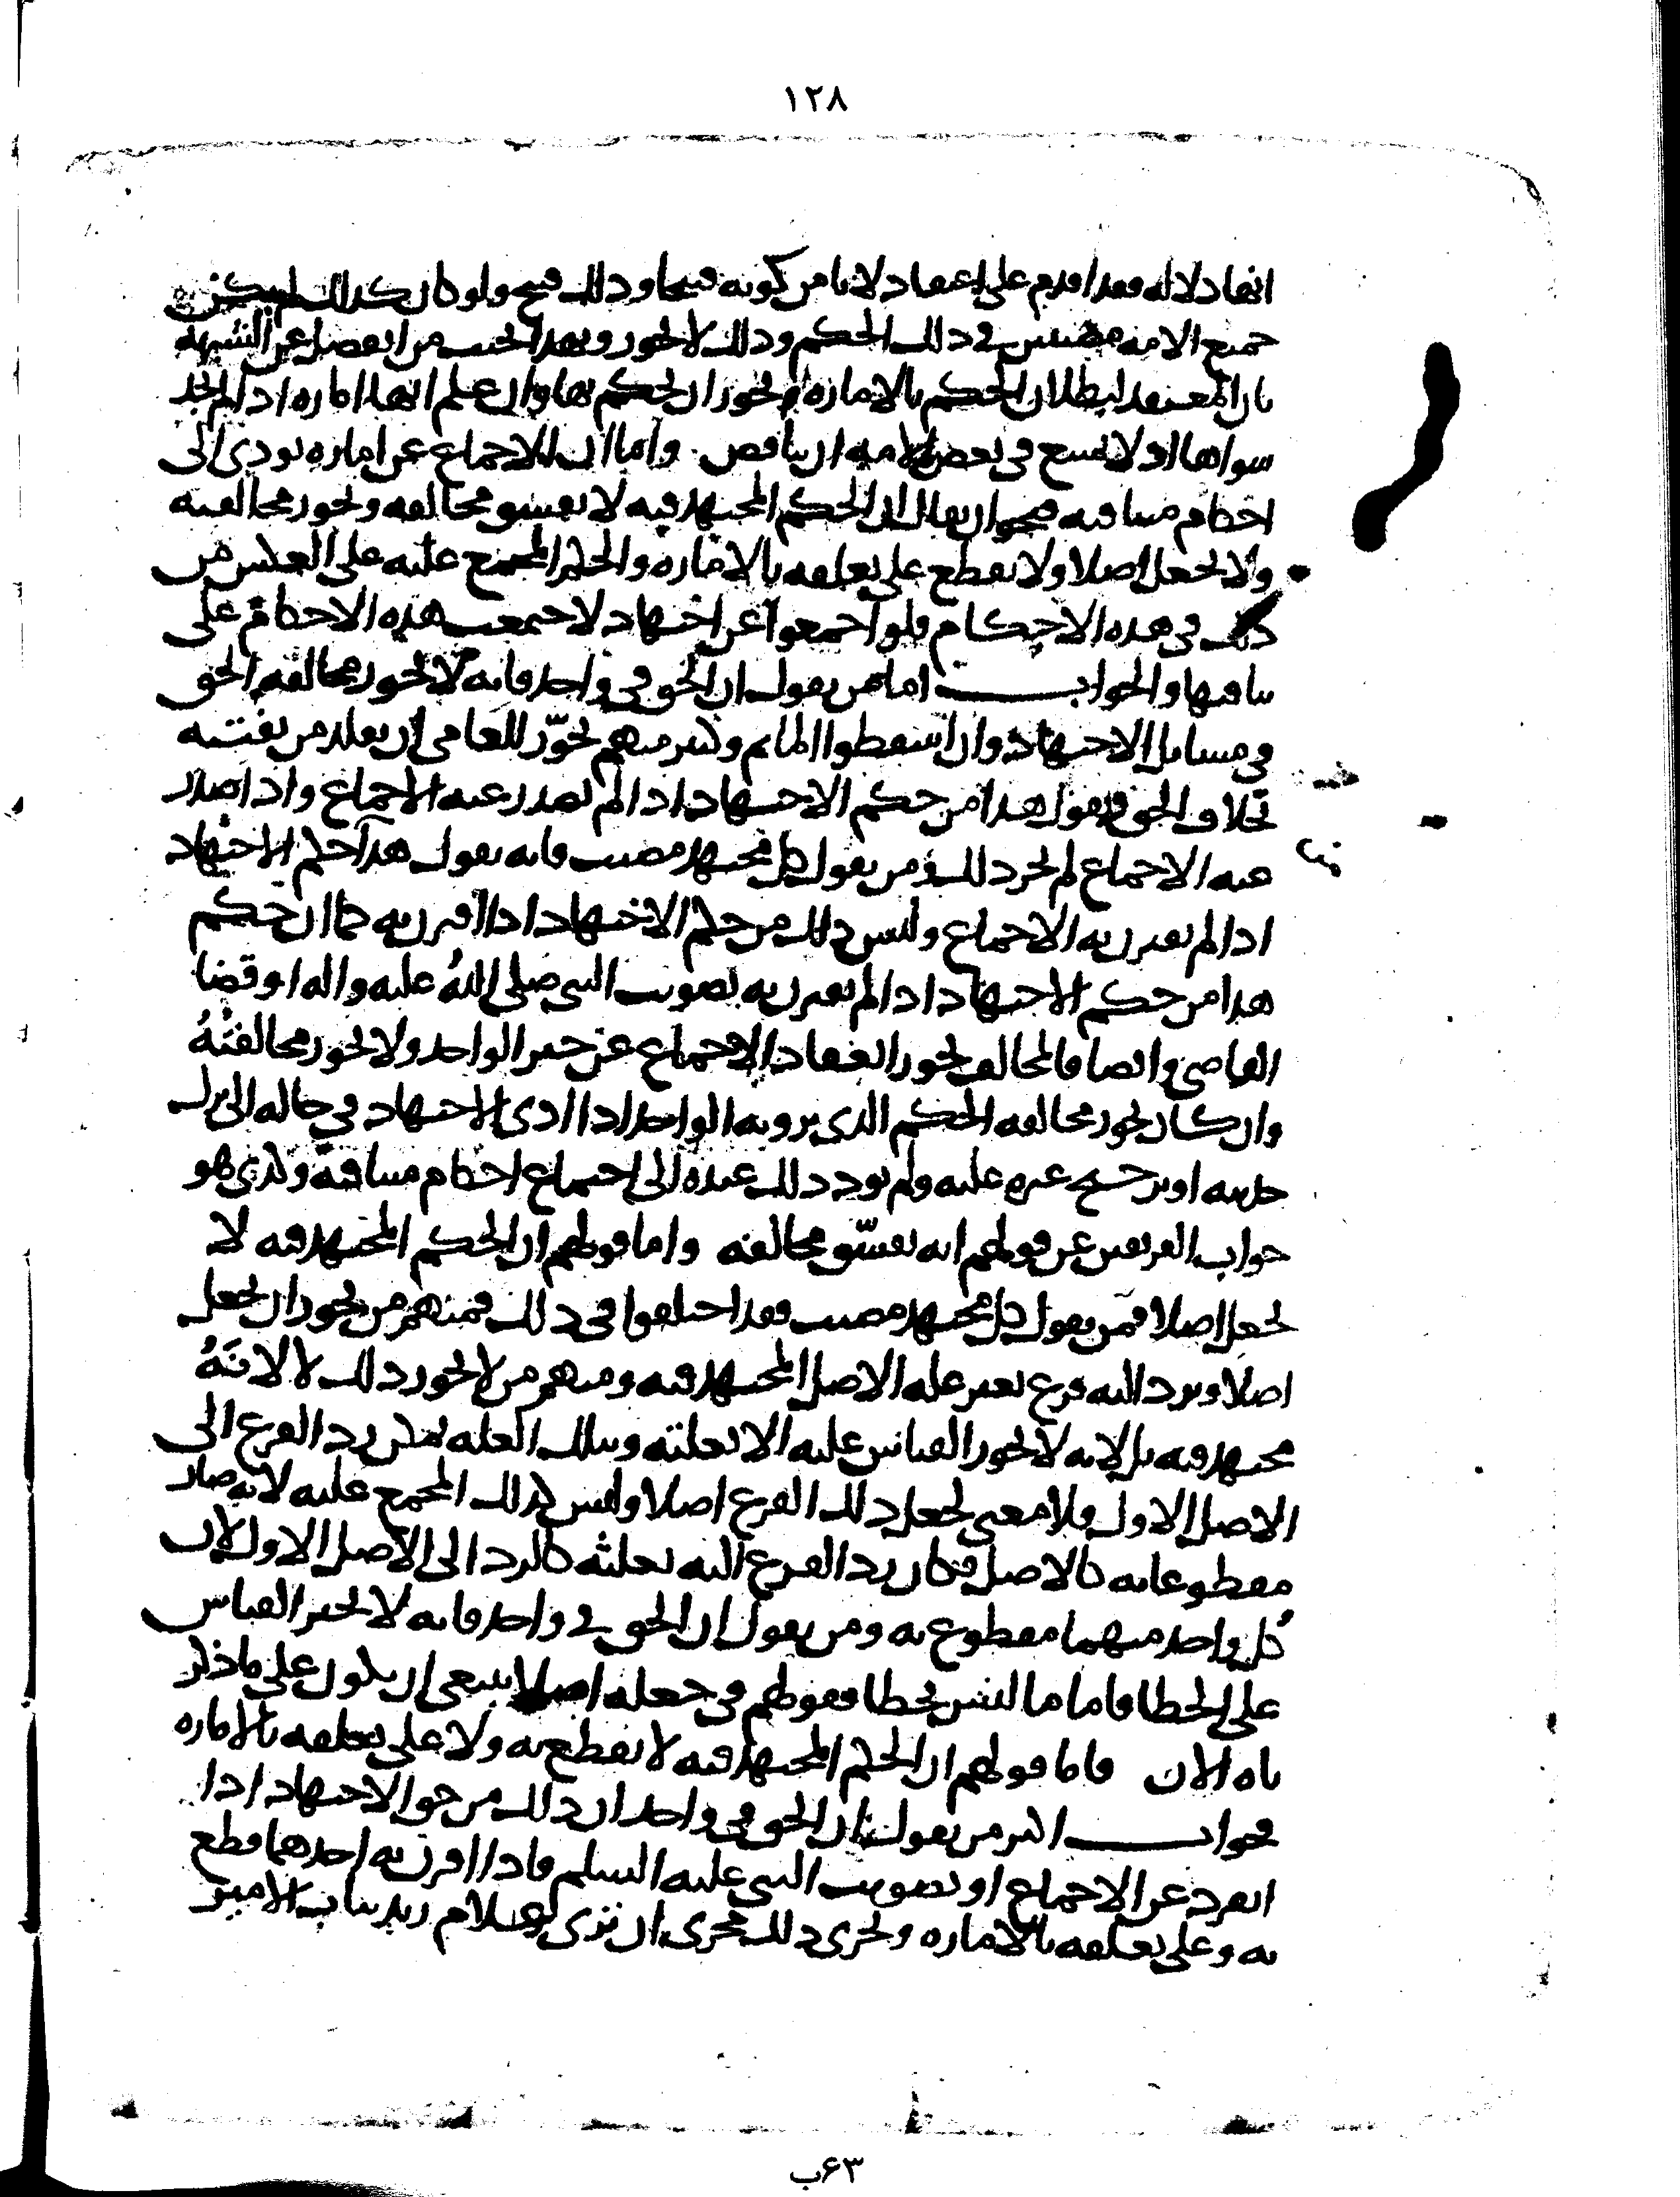 ١٢٨
انها دلاله فقد اقدم على اعتقاد لا يامن كونه قبيحا وذلك قبيح ولو كان كذلك لم يكن
جميع الامه مصيبين في ذلك الحكم وذلك لا يجوز وبهذا يجيب من انفصل عن الشبهه
بان المعتقد لبطلان الحكم بالاماره يجوز ان يحكم بها وان علم انها اماره اذا لم يجد
سواها اذ لا يمتنع في بعض الامه ان يناقض واما ان الاجماع عن اماره يودي الى
احكام متنافيه فهو ان يقال ان الحكم المجتهد فيه لا يفسق مخالفه ويجوز مخالفته
ولا يجعل اصلا ولا يقطع على تعلقه بالاماره والحكم المجمع عليه على العكس من
ذلك في هذه الاحكام فلو اجمعوا عن اجتهاد لاجتمعت هذه الاحكام على
تنافيها والجواب اما من يقول ان الحق في واحد فانه لا يجوز مخالفه الحق
في مسايل الاجتهاد وان اسقطوا الماثم وكثير منهم يجوّز للعامي ان يقلد من يفتيه
بخلاف الحق ويقول هذا من حكم الاجتهاد اذا لم يصدر عنه الاجماع واذا صدر
عنه الاجماع لم يجز ذلك ومن يقول كل مجتهد مصيب فانه يقول هذا حكم الاجتهاد
اذا لم يقترن به الاجماع وليس ذلك من حكم الاجتهاد اذا اقترن به كما ان حكم
هذا من حكم الاجتهاد اذا لم يقترن به تصويب النبي صلى اللهُ عليه واله او قضا
القاضي وايضا فالمخالف يجوز انعقاد الاجماع عن خبر الواحد ولا يجوز مخالفتُهُ
وان كان يجوز مخالفه الحكم الذي يرويه الواحد اذا ادى الاجتهاد في حاله الى ترك
حديثه او ترجيح غيره عليه ولم يودد ذلك عنده الى اجتماع احكام متنافيه وكذي هو
جواب الفريقين عن قولهم انه يفسّق مخالفه واما قولهم ان الحكم المجتهد فيه لا
يجعل اصلا فمن يقول كل مجتهد مصيب فقد اختلفوا في ذلك فمنهم من يجوز ان يجعل
اصلا ويرد اليه فرع بغير عله الاصل المجتهد فيه ومنهم من لا يجوز ذلك لا لانَهُ
مجتهد فيه بل لانه لا يجوز القياس عليه الا بعلته وبتلك العله يمكن رد الفرع الى
الاصل الاول فلا معنى لجعل ذلك الفرع اصلا وليس كذلك المجمع عليه لانه صار
مقطوعا به كالاصل فكان رد الفرع اليه بعلته كالرد الى الاصل الاول لان
كُل واحد منهما مقطوع به ومن يقول ان الحق في واحد فانه لا يجيز القياس
على الخطا فاما ما ليس بخطا فقولهم في جعله اصلا ينبغي ان يكون على ما ذكر
ناه الان فاما قولهم ان الحكم المجتهد فيه لا يقطع به ولا على تعلقه بالاماره
فجواب اكثر من يقول ان الحق في واحد ان ذلك من حق الاجتهاد اذا
انفرد عن الاجماع او تصويب النبي عليه السلم فاذا اقترن به احدهما قطع
به وعلى تعلقه بالاماره ويجري ذلك مجرى ان نرى غلام زيد بباب الامير
٦٣ب